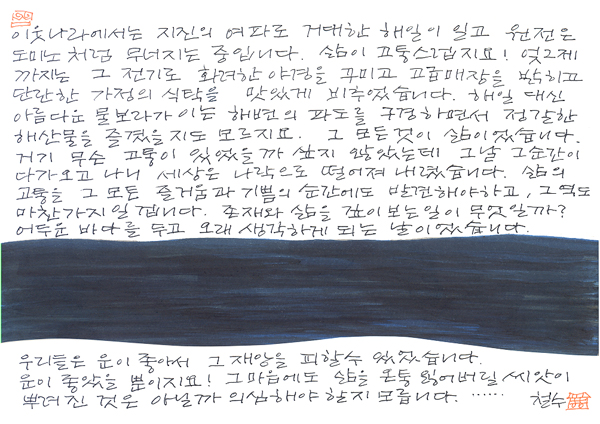 이웃나라에서는 지진의 여파로 거대한 해일이 일고 원전은
도미노처럼 무너지는 중입니다. 삶이 고통스럽지요! 엊그제
까지는 그 전기로 화려한 야경을 꾸미고 고급매장을 밝히고
단란한 가정의 식탁을 맛있게 비추었습니다. 해일 대신
아름다운 물보라가 이는 해변의 파도를 구경하면서 정갈한
해산물을 즐겼을지도 모르지요. 그 모든것이 삶이었습니다.
거기 무슨 고통이 있었을까 싶지 않았는데 그날 그순간이
다가오고 나니 세상은 나락으로 떨어져 내렸습니다. 삶의
고통을 그 모든 즐거움과 기쁨의 순간에도 발견해야하고, 그 역도
마찬가지일 겁니다. 존재와 삶을 깊이 보는 일이 무엇일까?
어두운 바다를 두고 오래 생각하게 되는 날이었습니다.
우리들은 운이 좋아서 그 재앙을 피할수 있었습니다.
운이 좋았을 뿐이지요! 그 마음에도 삶을 온통 잃어버릴 씨앗이
뿌려진 것은 아닐까 의심해야 할지 모릅니다. ‥‥‥ 철수